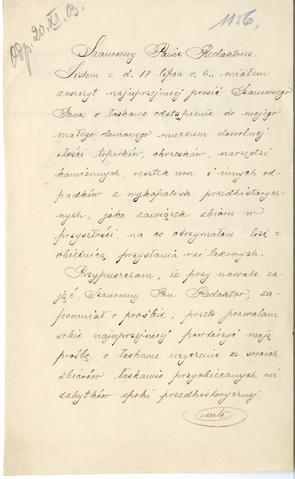 Odp. 20.XI.03.
1156.
Szanowny Panie Redaktorze.
Listem z d. 19 lipca r. b. miałem
zaszczyt najuprzejmiej prosić Szanownego
Pana o łaskawe odstąpienie do mojego
małego domowego muzeum dowolnej
ilości toporków, okrzesków, narzędzi
kamiennych, resztek urn i innych od-
padków z wykopalisk przedhistorycz-
nych, jako zawiązek zbioru w
przyszłości, na co otrzymałem list z
obietnicą przysłania mi takowych.
Przypuszczam, że przy nawale za-
jęć Szanowny Pan Redaktor, za-
pomniał o prośbie, przeto pozwalam
sobie najuprzejmiej powtórzyć moją
prośbę, o łaskawe użyczenie ze swoich
zbiorów łaskawie przyobiecanych mi
zabytków epoki przedhistorycznej.